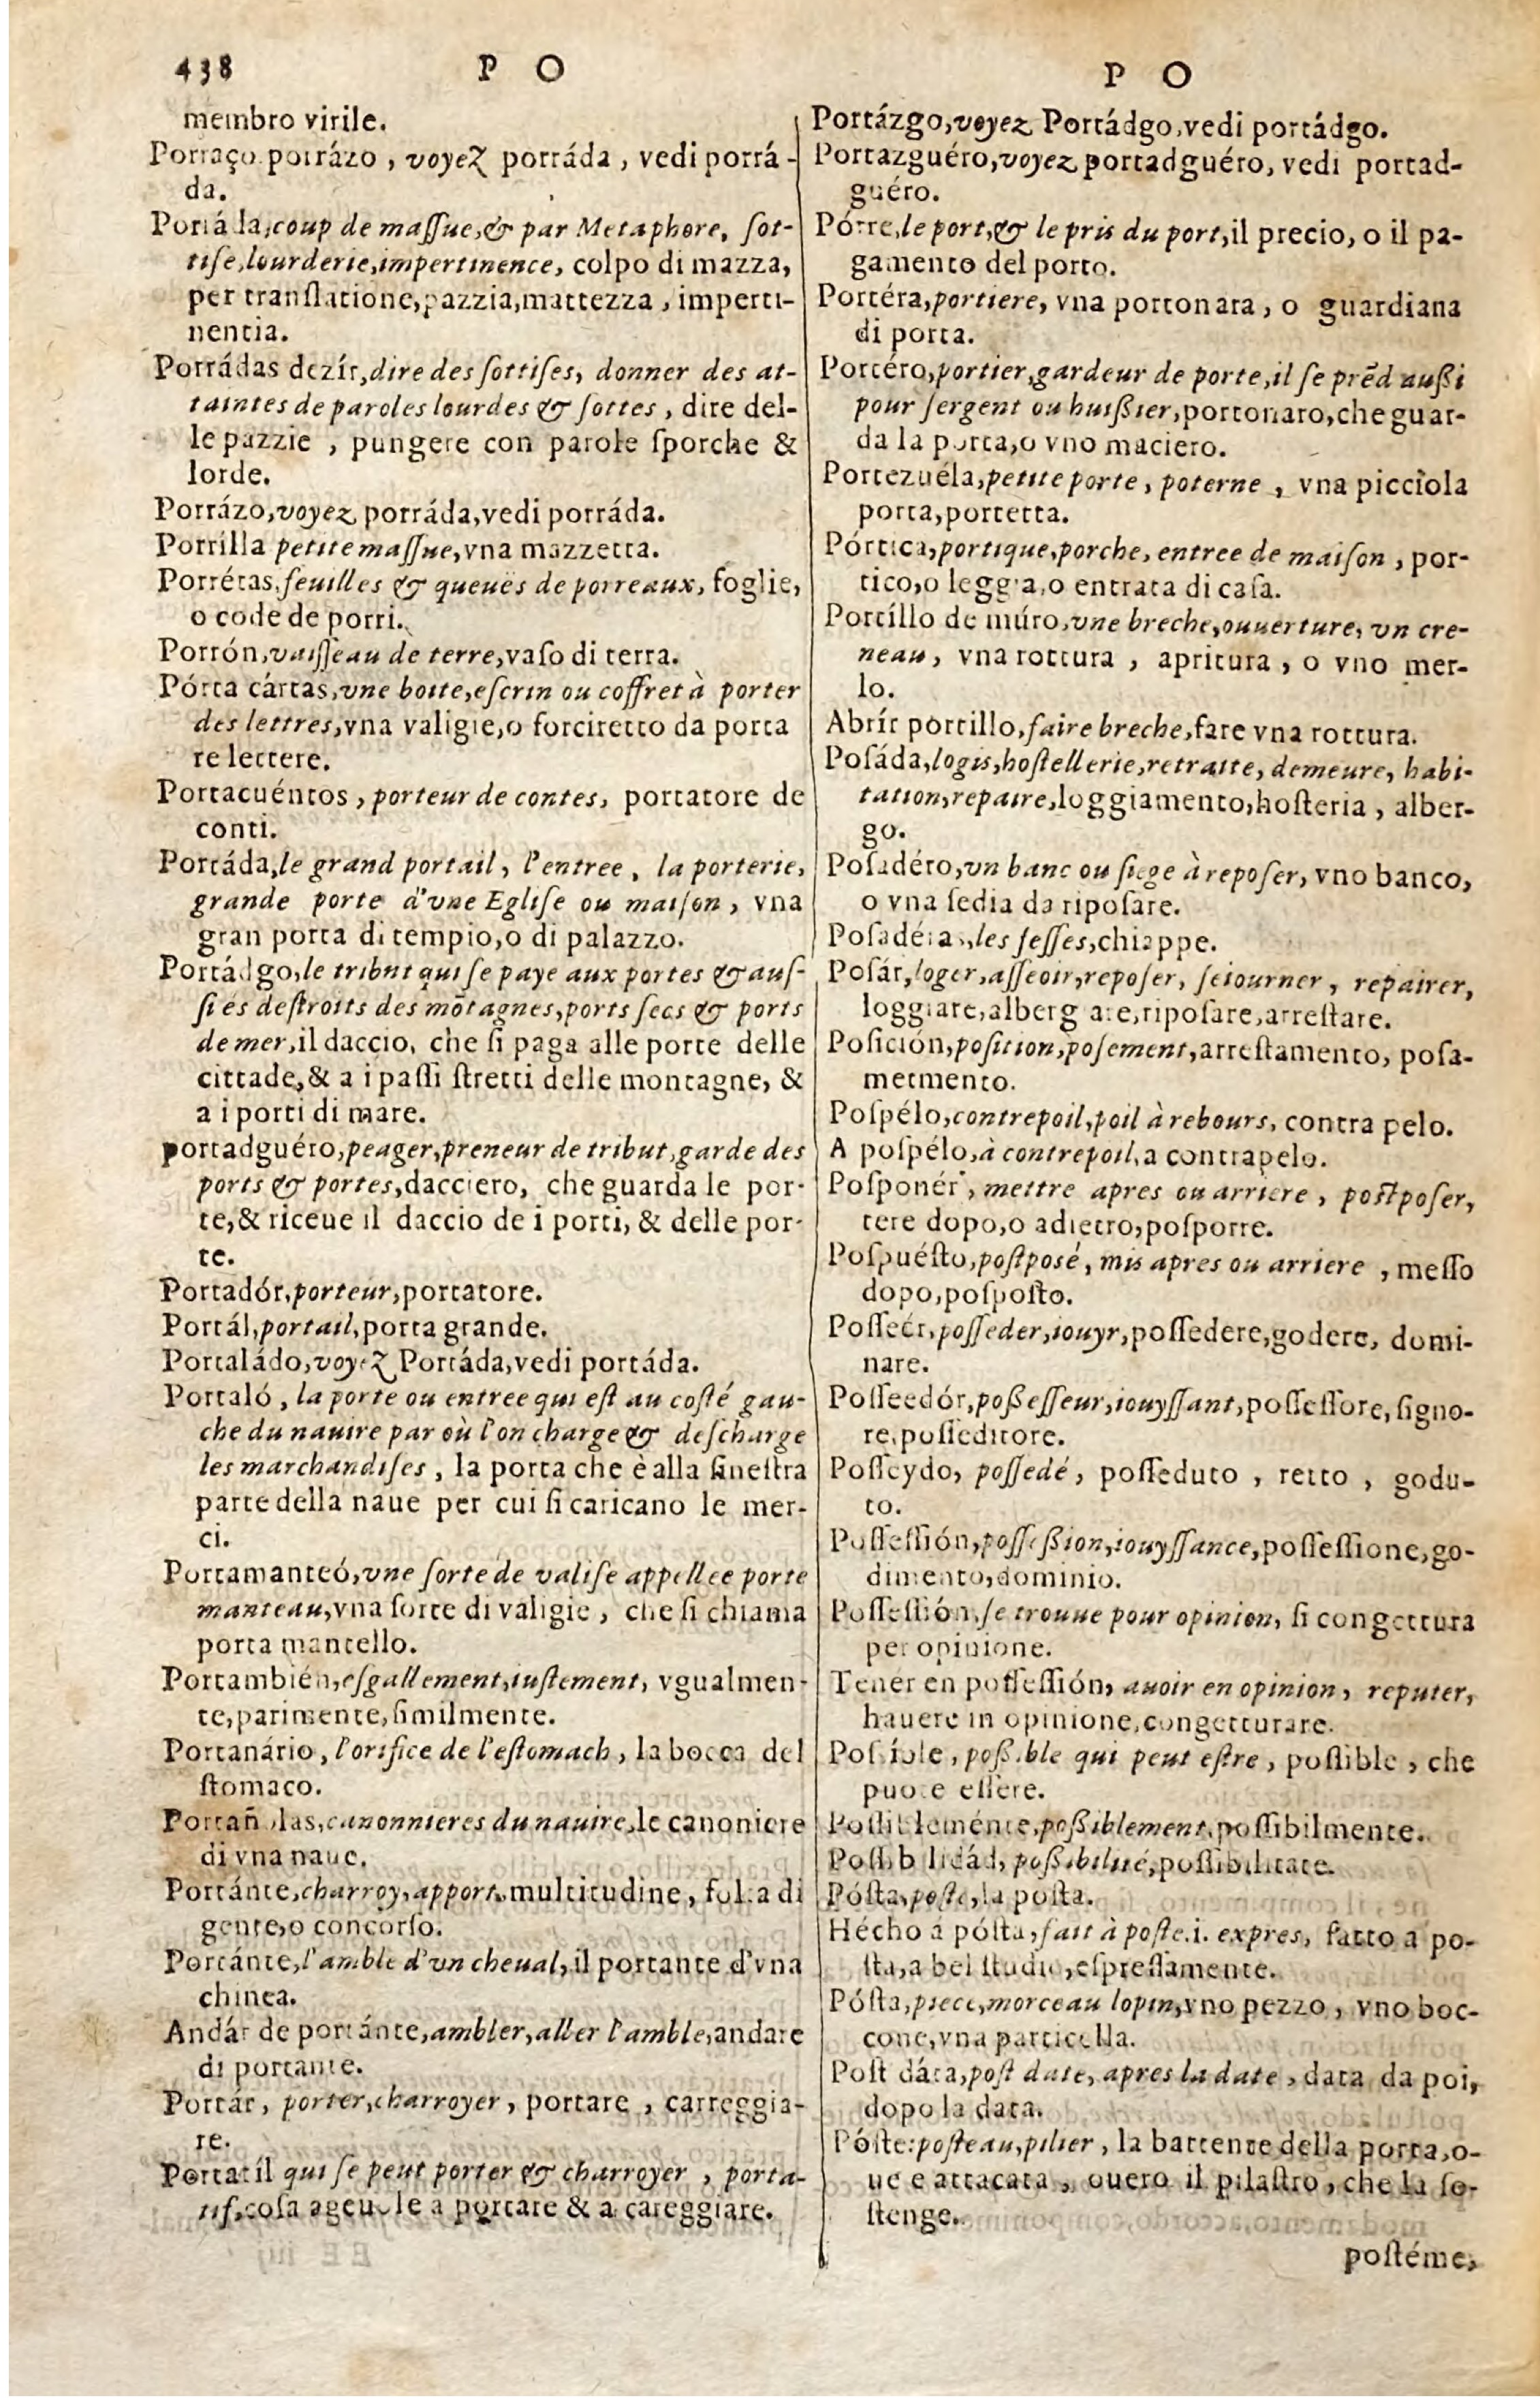 438 P O
membro virile.
Porraço porrázo, voyez porráda, vedi porrá-
da.
Porráda, coup de maſſue, & par Metaphore, ſot-
tiſe, lourderie, impertinence, colpo di mazza,
per tranſlatione, pazzia, mattezza, imperti-
nentia.
Porrádas dezír, dire des ſottiſes, donner des at-
taintes de paroles lourdes & ſottes, dire del-
le pazzie, pungere con parole ſporche &
lorde.
Porrázo, voyez porráda, vedi porráda.
Porrílla petite maſſue, vna mazzetta.
Porrétas, feuilles & queuës de porreaux, foglie,
o code de porri.
Porrón, vaiſſeau de terre, vaſo di terra.
Pórta cártas, vne boite, eſcrin ou coffret à porter
des lettres, vna valigie, o forciretto da porta
re lettere.
Portacuéntos, porteur de contes, portatore de
conti.
Portáda, le grand portail, l'entree, la porterie,
grande porte d'vne Egliſe ou maiſon, vna
gran porta di tempio, o di palazzo.
Portádgo, le tribnt qui ſe paye aux portes & auſ-
ſi es deſtroits des mōtagnes, ports ſecs & ports
de mer, il daccio, che ſi paga alle porte delle
cittade, & a i paſſi ſtretti delle montagne, &
a i porti di mare.
portadguéro, peager, preneur de tribut, garde des
ports & portes, dacciero, che guarda le por-
te, & riceue il daccio de i porti, & delle por-
te.
Portadór, porteur, portatore.
Portál, portail, porta grande.
Portaládo, voyez Portáda, vedi portáda.
Portaló, la porte ou entree qui eſt au coſté gau-
che du nauire par où l'on charge & deſcharge
les marchandiſes, la porta che è alla ſineſtra
parte della naue per cui ſi caricano le mer-
ci.
Portamanteó, vne ſorte de valiſe appellee porte
manteau, vna ſorte di valigie, che ſi chiama
porta mantello.
Portambién, eſgallement, iuſtement, vgualmen-
te, parimente, ſimilmente.
Portanário, l'orifice de l'eſtomach, la bocca del
ſtomaco.
Portañolas, canonnieres du nauire, le canoniere
di vna naue.
Portánte, charroy, apport, multitudine, folla di
gente, o concorſo.
Portánte, l'amble d'vn cheual, il portante d'vna
chinea.
Andár de portánte, ambler, aller l'amble, andare
di portante.
Portár, porter, charroyer, portare, carreggia-
re.
Portatíl qui ſe peut porter & charroyer, porta-
tif, coſa ageuole a portare & a careggiare.
P O
Portázgo, voyez Portádgo, vedi portádgo.
Portazguéro, voyez portadguéro, vedi portad-
guéro.
Pórte, le port, & le pris du port, il precio, o il pa-
gamento del porto.
Portéra, portiere, vna portonara, o guardiana
di porta.
Portéro, portier, gardeur de porte, il ſe prẽd außi
pour ſergent ou huißier, portonaro, che guar-
da la porta, o vno maciero.
Portezuéla, petite porte, poterne, vna picciola
porta, portetta.
Pórtica, portique, porche, entree de maiſon, por-
tico, o leggia, o entrata di caſa.
Portíllo de múro, vne breche, ouuerture, vn cre-
neau, vna rottura, apritura, o vno mer-
lo.
Abrír portillo, faire breche, fare vna rottura.
Poſáda, logis, hoſtellerie, retraite, demeure, habi-
tation, repaire, loggiamento, hoſteria, alber-
go.
Poſadéro, vn banc ou ſiege à repoſer, vno banco,
o vna ſedia da ripoſare.
Poſadéras, les feſſes, chiappe.
Poſár, loger, aſſeoir, repoſer, ſeiourner, repairer,
loggiare, albergare, ripoſare, arreſtare.
Poſición, poſition, poſement, arreſtamento, poſa-
metmento.
Poſpélo, contrepoil, poil à rebours, contra pelo.
A poſpélo, à contrepoil, a contrapelo.
Poſponér, mettre apres ou arriere, poſtpoſer,
tere dopo, o adietro, poſporre.
Poſpuéſto, poſtposé, mis apres ou arriere, meſſo
dopo, poſpoſto.
Poſſeér, poſſeder, iouyr, poſſedere, godere, domi-
nare.
Poſſeedór, poßeſſeur, iouyſſant, poſſeſſore, ſigno-
re, poſſeditore.
Poſſeydo, poſſedé, poſſeduto, retto, godu-
to.
Poſſeſſión, poſſeßion, iouyſſance, poſſeſſione, go-
dimento, dominio.
Poſſeſſión, ſe trouue pour opinion, ſi congettura
per opinione.
Tenér en poſſeſſión, auoir en opinion, reputer,
hauere in opinione, congetturare.
Poſſíble, poßible qui peut eſtre, poſſible, che
puote eſſere.
Poſſibleménte, poßiblement, poſſibilmente.
Poſſibilidád, poßibilité, poſſibilitate.
Póſta, poſte, la poſta.
Hécho a póſta, fait à poſte.i. expres, fatto a po-
ſta, a bel ſtudio, eſpreſſamente.
Póſta, piece, morceau lopin, vno pezzo, vno boc-
cone, vna particella.
Poſt dáta, poſt date, apres la date, data da poi,
dopo la data.
Póſte: poſteau, pilier, la battente della porta, o-
ue e attacata, ouero il pilaſtro, che la ſo-
ſtenge.
poſtéme,